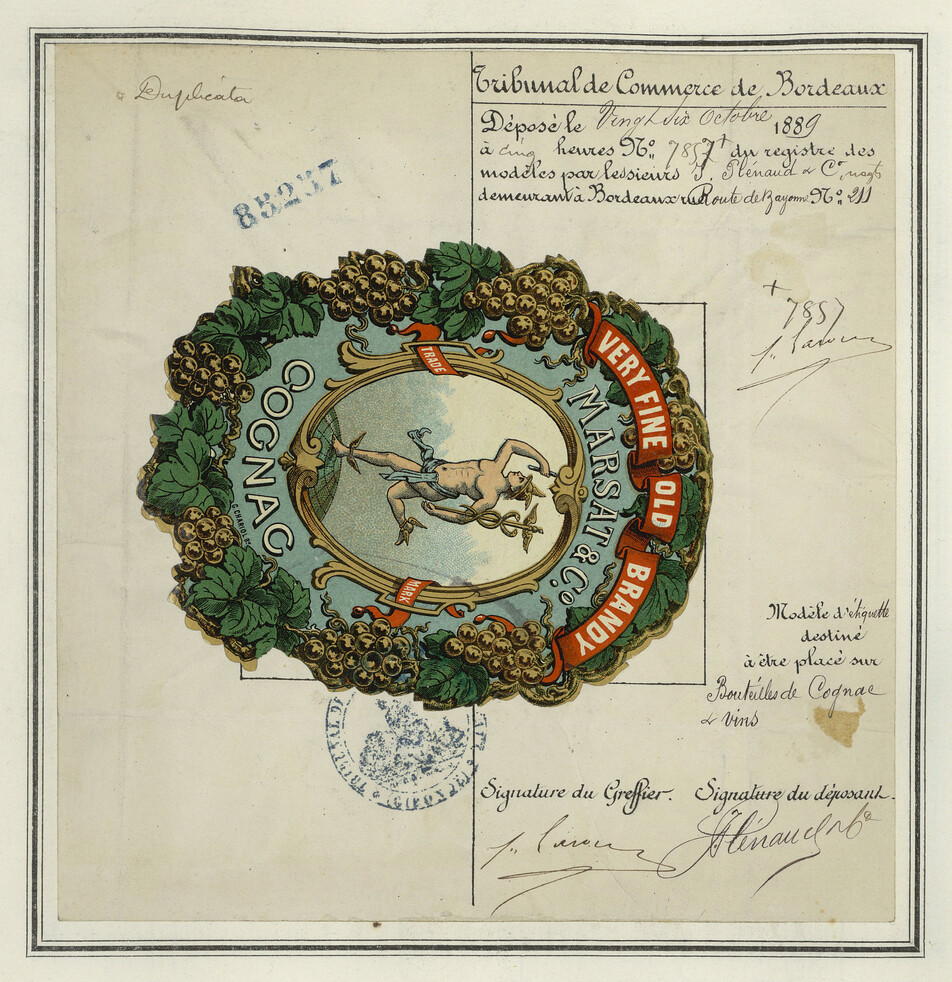 Duplicata
85237
Tribunal de Commerce de Bordeaux
Déposé le Vingt Six Octobre 1889
à cinq heures No. 7857 + du registre des
modèles par lessieurs J. Plénaud & Ce, negts
demeurant à Bordeaux rue Route de Bayonne No. 211
+
7857
VERY FINE OLD BRANDY
MARSAT & Co.
TRADE
MARK
COGNAC
G. CHARIOL Bx
Modèle d'étiquette
destiné
à être placé sur
Bouteilles de Cognac
& vins
TRIBUNAL DE
(GIRONDE)
Signature du Greffier. Signature du déposant.